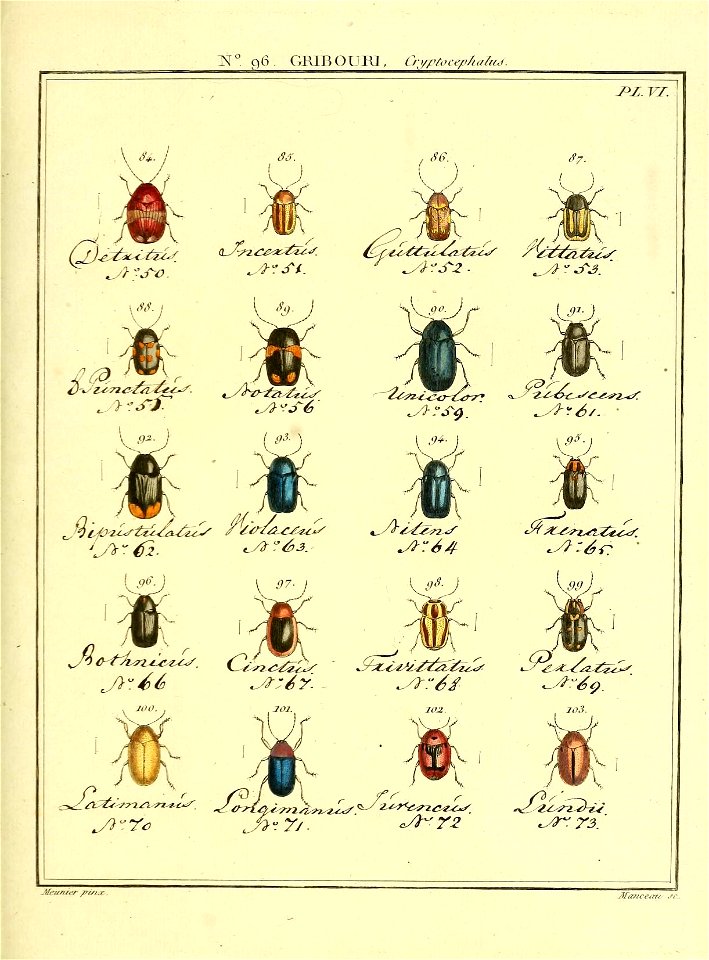 N.° 96. GRIBOURI, Cryptocephalus.
PL. VI.
84. 85. 86. 87.
Detritus. Incertus. Guttulatus Vittatus.
N.° 50. N.° 51. N.° 52. N.° 53.
88. 89. 90. 91.
8 Punctatus. Notatus. Unicolor. Pubescens.
N.° 56 N.° 59. N.° 61.
92. 93. 94. 95.
Bipustulatus Violaceus Nitens Frenatus.
N.° 62. N.° 63. N.° 64 N.° 65.
96. 97. 98. 99
Bothnicus. Cinctus Trivittatus Perlatus.
N.° 66 N.° 67. N.° 68 N.° 69.
100. 101. 102. 103.
Latimanus. Longimanus. Juvencus. Lundii.
N.° 70 N.° 71. N.° 72 N.° 73.
Meunier pinx. Manceau sc.